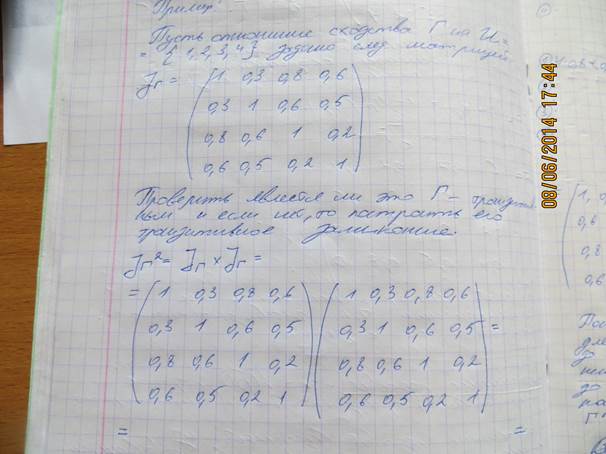 Пример
Пусть отношение сходства Г на U =
= {1,2,3,4} задано след матрицей
Jг = (1 0,3 0,8 0,6
0,3 1 0,6 0,5
0,8 0,6 1 0,2
0,6 0,5 0,2 1)
Проверить является ли это Г –
и если нет, то его
транзитивное замыкание.
Jг² = Jг × Jг =
= (1 0,3 0,8 0,6 0,3 1 0,6 0,5 0,8 0,6 1 0,2 0,6 0,5 0,2 1) (1 0,3 0,8 0,6 0,3 1 0,6 0,5 0,8 0,6 1 0,2 0,6 0,5 0,2 1) =
= =
08/06/2014 17:44